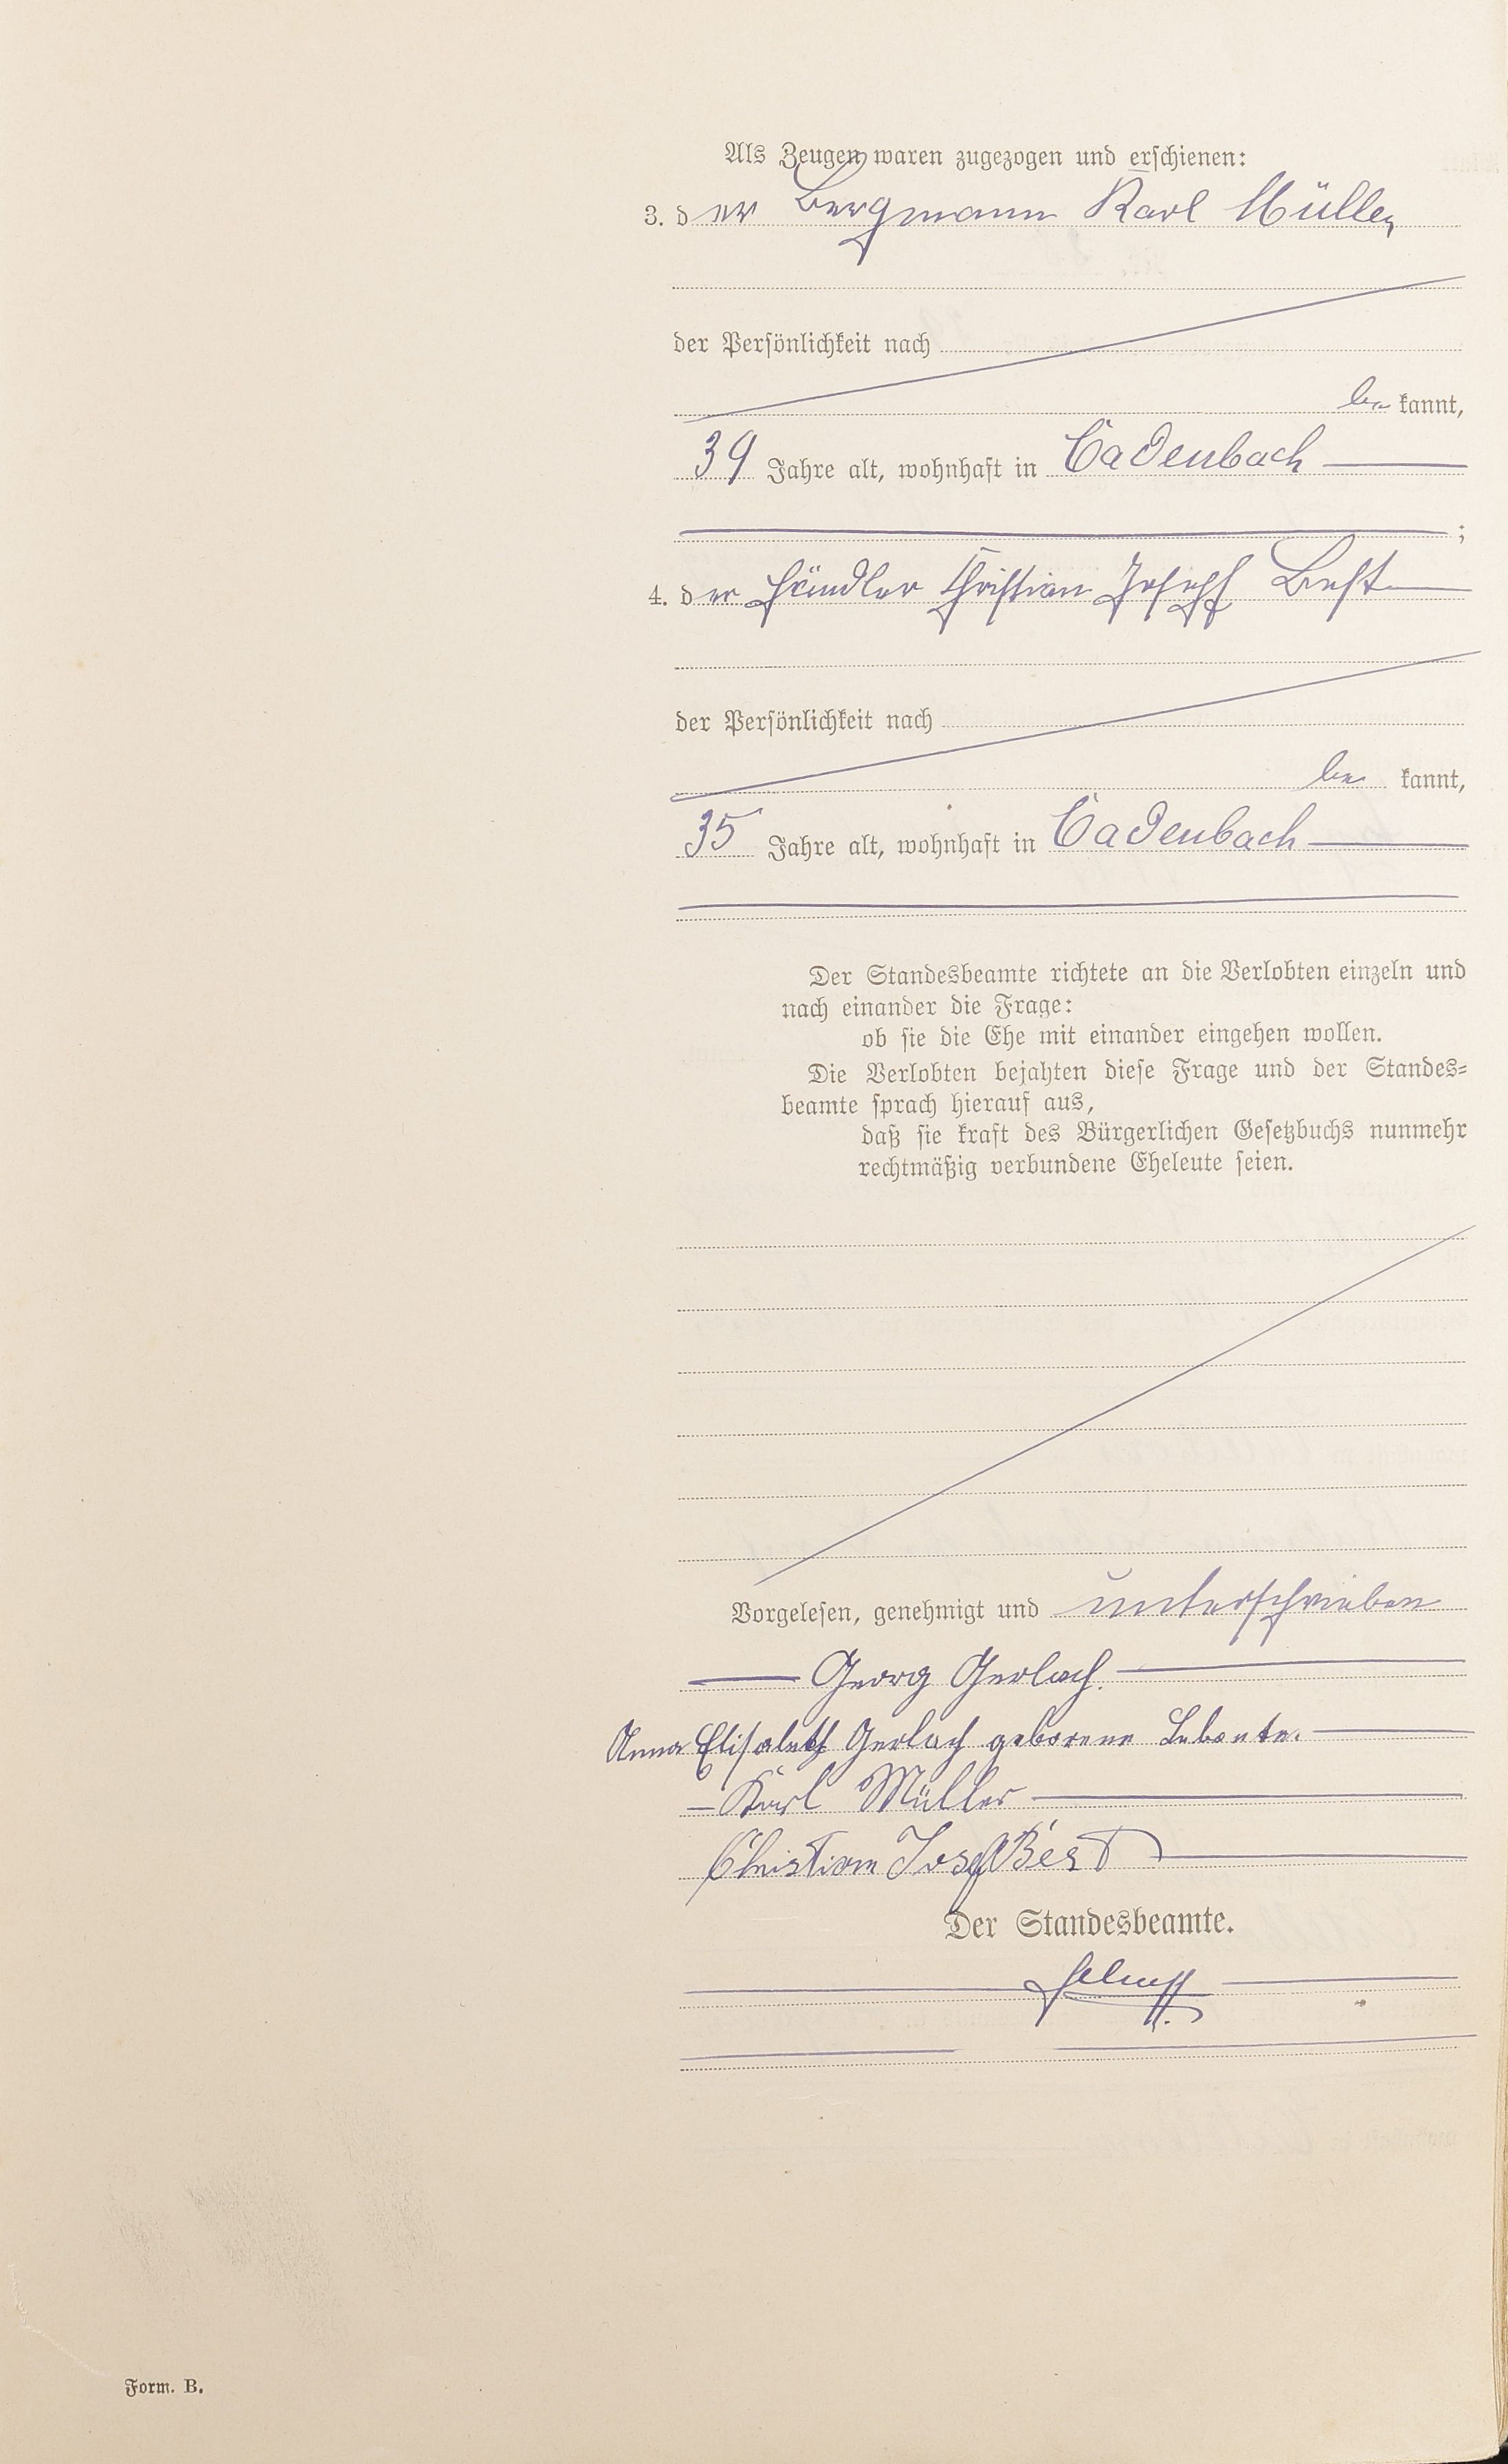 Als Zeugen waren zugezogen und erschienen:
3. der Bergmann Karl Müller
der Persönlichkeit nach
be kannt,
39 Jahre alt, wohnhaft in Cadenbach
;
4. der Händler Christian Joseph Best
der Persönlichkeit nach
be kannt,
35 Jahre alt, wohnhaft in Cadenbach
Der Standesbeamte richtete an die Verlobten einzeln und
nach einander die Frage:
ob sie die Ehe mit einander eingehen wollen.
Die Verlobten bejahten diese Frage und der Standes=
beamte sprach hierauf aus,
daß sie kraft des Bürgerlichen Gesetzbuchs nunmehr
rechtmäßig verbundene Eheleute seien.
Vorgelesen, genehmigt und unterschrieben
Georg Gerlach.
Anna Elisabeth Gerlach geborene Labonte.
Karl Müller
Christian Josef Best
Der Standesbeamte.
Form. B.